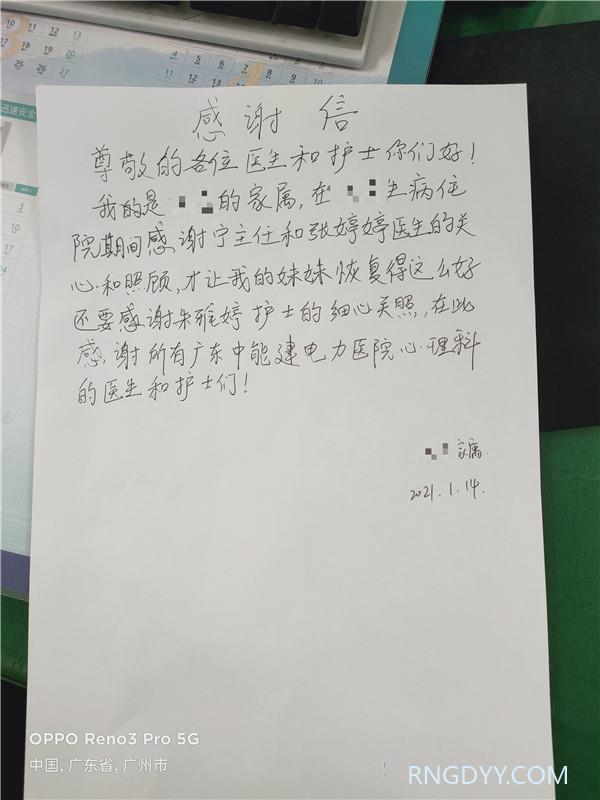 感谢信
尊敬的各位医生和护士你们好！
我的是 的家属，在 生病住
院期间感谢宁主任和张婷婷医生的关
心和照顾，才让我的妹妹恢复得这么好
还要感谢朱雅婷护士的细心关照，在此
感谢所有广东中能建电力医院心理科
的医生和护士们！
家属
2021.1.14.
迅速安全
OPPO Reno3 Pro 5G
中国, 广东省, 广州市
RNGDYY.COM